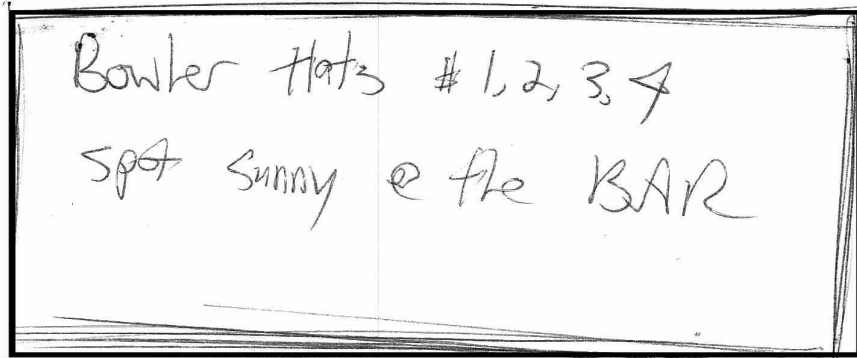 Bowler Hats # 1, 2, 3, 4
spot sunny @ the BAR